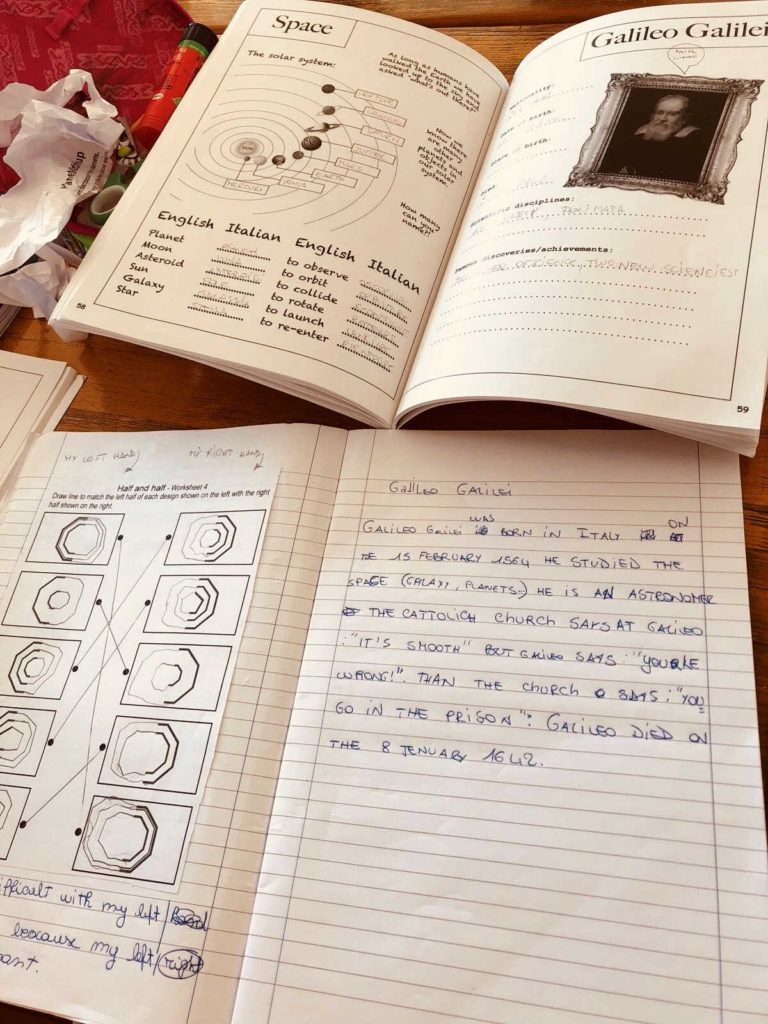 Space
The solar system:
As long as humans have
walked the Earth we have
looked up to the sky and
asked -what's out there?
NEPTUNE
URANUS
SATURN
JUPITER
MARS
EARTH
VENUS
MERCURY
SUN
Now we
know there
are many
other
planets and
objects in
our solar
system.
How many
can you
name?
English Italian English Italian
Planet
Moon
Asteroid
Sun
Galaxy
Star
to observe
to orbit
to collide
to rotate
to launch
to re-enter
58
Galileo Galilei
Nationality:
Date of birth:
Place of birth:
Died:
Scientific disciplines:
Famous discoveries/achievements:
TWO NEW SCIENCIES
59
MY LEFT HAND
MY RIGHT HAND
Half and half - Worksheet 4
Draw line to match the left half of each design shown on the left with the right
half shown on the right.
ifficult with my left
because my left right
Galileo Galilei
GALILEO Galilei WAS BORN IN ITALY ON
THE 15 FEBRUARY 1564 HE STUDIED THE
SPACE (GALAXY, PLANETS..) HE IS AN ASTRONOMER
THE CATTOLICH CHURCH SAYS AT GALILEO
:"IT'S SMOOTH" BUT GALILEO SAYS:"YOU'RE
WRONG!". THAN THE CHURCH SAYS:"YOU
GO IN THE PRISON". GALILEO DIED ON
THE 8 JENUARY 1642.